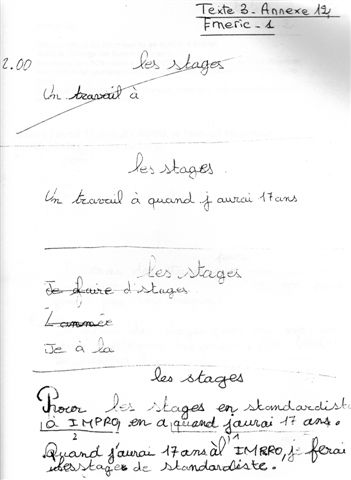 Texte 3 - Annexe 12
Emeric - 1
2.00
les stages
Un travail à
les stages.
Un travail à quand j aurai 17 ans
les stages
Je faire d stages
L année
Je à la
les stages
Pour les stages en standardiste
à IMPRO, en a quand j'aurai 17 ans.
2
1
Quand j'aurai 17 ans à l' IMPRO, je ferai
stage de standardiste.